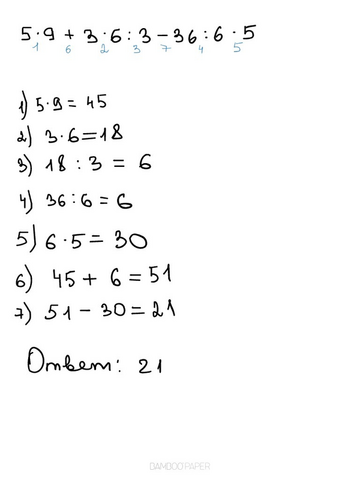 5·9 + 3·6:3 - 36:6·5
1 6 2 3 7 4 5
1) 5·9 = 45
2) 3·6 = 18
3) 18 : 3 = 6
4) 36:6 = 6
5) 6·5 = 30
6) 45 + 6 = 51
7) 51 - 30 = 21
Ответ: 21
BAMBOO PAPER